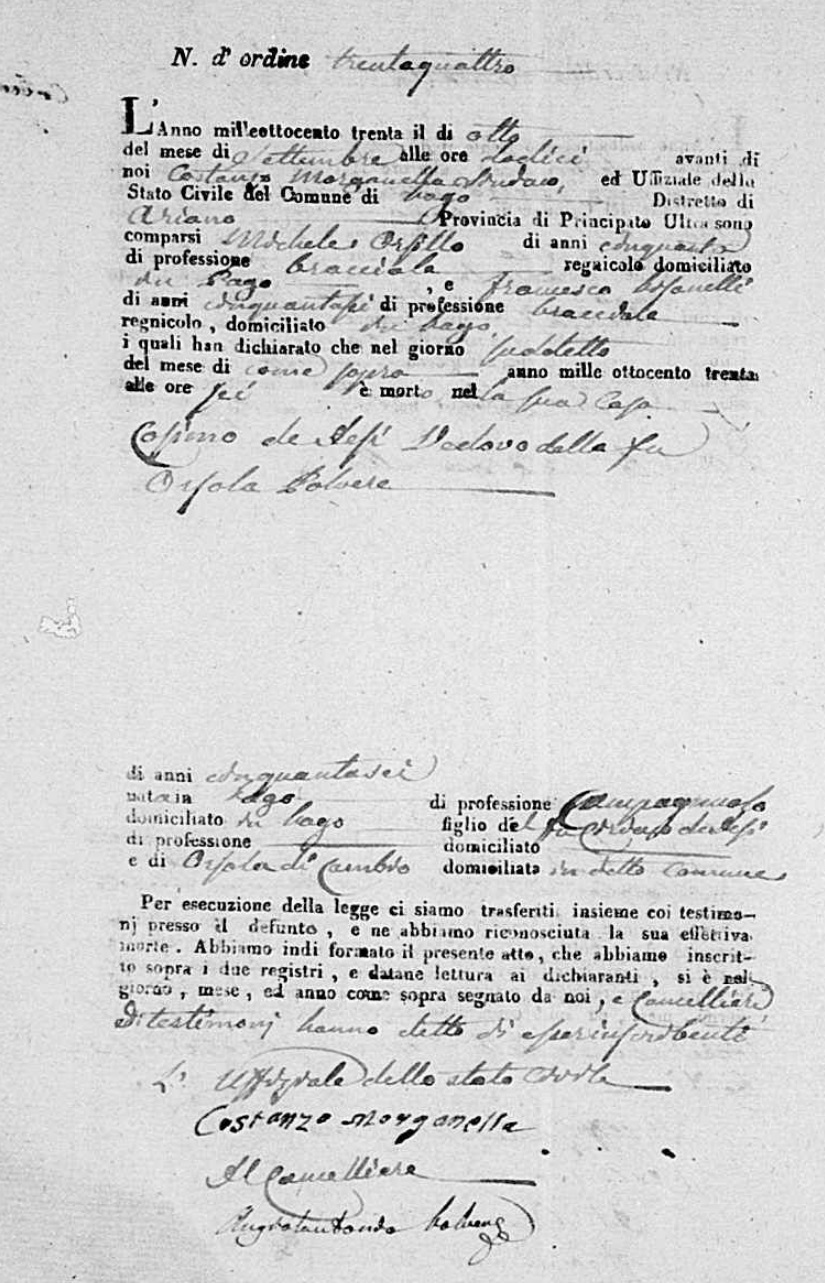 N. d'ordine trentaquattro
L'Anno mill'eottocento trenta il di otto
del mese di Settembre alle ore dodici avanti di
noi Costanzo Morganella Sindaco, ed Uffiziale dello
Stato Civile del Comune di Pago Distretto di
Ariano Provincia di Principato Ultra sono
comparsi Michele Orsillo di anni cinquanta
di professione bracciale regnicolo domiciliato
in Pago , e Francesco
di anni cinquantasei di professione bracciale
regnicolo, domiciliato in Pago
i quali han dichiarato che nel giorno suddetto
del mese di come sopra anno mille ottocento trenta
alle ore sei è morto nella sua Casa
Cosimo de Vedovo della fu
Orsola Polvere
di anni cinquantasei
nato in Pago di professione Campagnuolo
domiciliato in Pago figlio del fu
di professione domiciliato
e di Orsola di Cambio domiciliata in detto Comune
Per esecuzione della legge ci siamo trasferiti insieme coi testimo-
nj presso il defunto, e ne abbiamo riconosciuta la sua effettiva
morte. Abbiamo indi formato il presente atto, che abbiamo inscrit-
to sopra i due registri, e datane lettura ai dichiaranti, si è nel
giorno, mese, ed anno come sopra segnato da noi, e Cancelliere
testimonj hanno detto di essere
L' Uffiziale dello stato Civile
Costanzo Morganella
Il Cancelliere